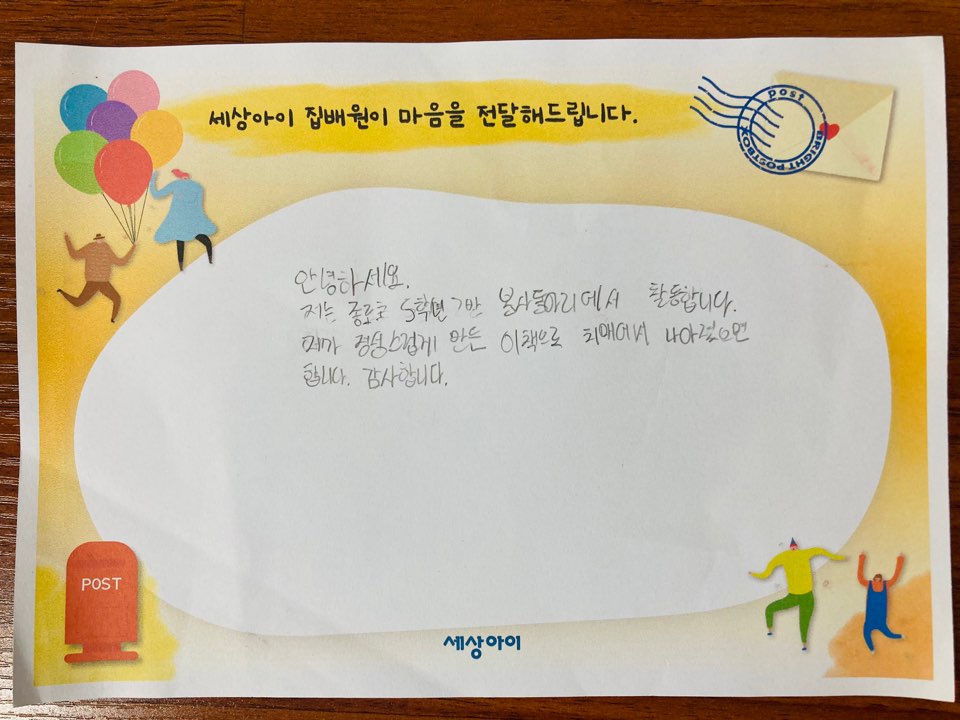 세상아이 집배원이 마음을 전달해드립니다.
Post
BRIGHT POSTBOX
안녕하세요.
저는 종로초 5학년 7반 봉사동아리에서 활동합니다.
제가 정성스럽게 만든 이책으로 치매에서 나아졌으면
합니다. 감사합니다.
POST
세상아이